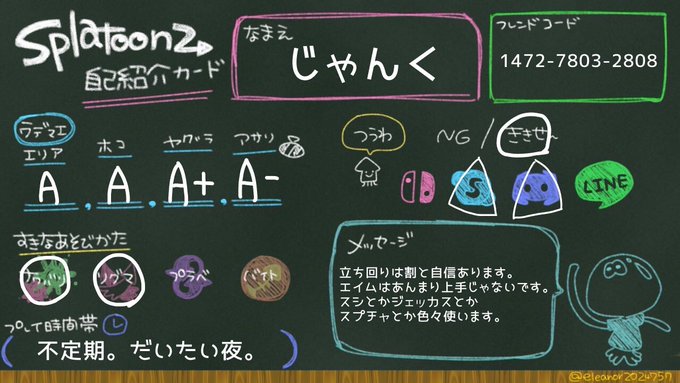 Splatoon2
自己紹介カード
なまえ
じゃんく
フレンドコード
1472-7803-2808
ウデマエ
エリア
ホコ
ヤグラ
アサリ
A , A , A+ , A-
つうわ
NG / ききせん
S
LINE
すきなあそびかた
ナワバリ
リグマ
プラベ
バイト
プレイ時間帯
(不定期。だいたい夜。)
メッセージ
立ち回りは割と自信あります。
エイムはあんまり上手じゃないです。
スシとかジェッカスとか
スプチャとか色々使います。
@eleanor2024757